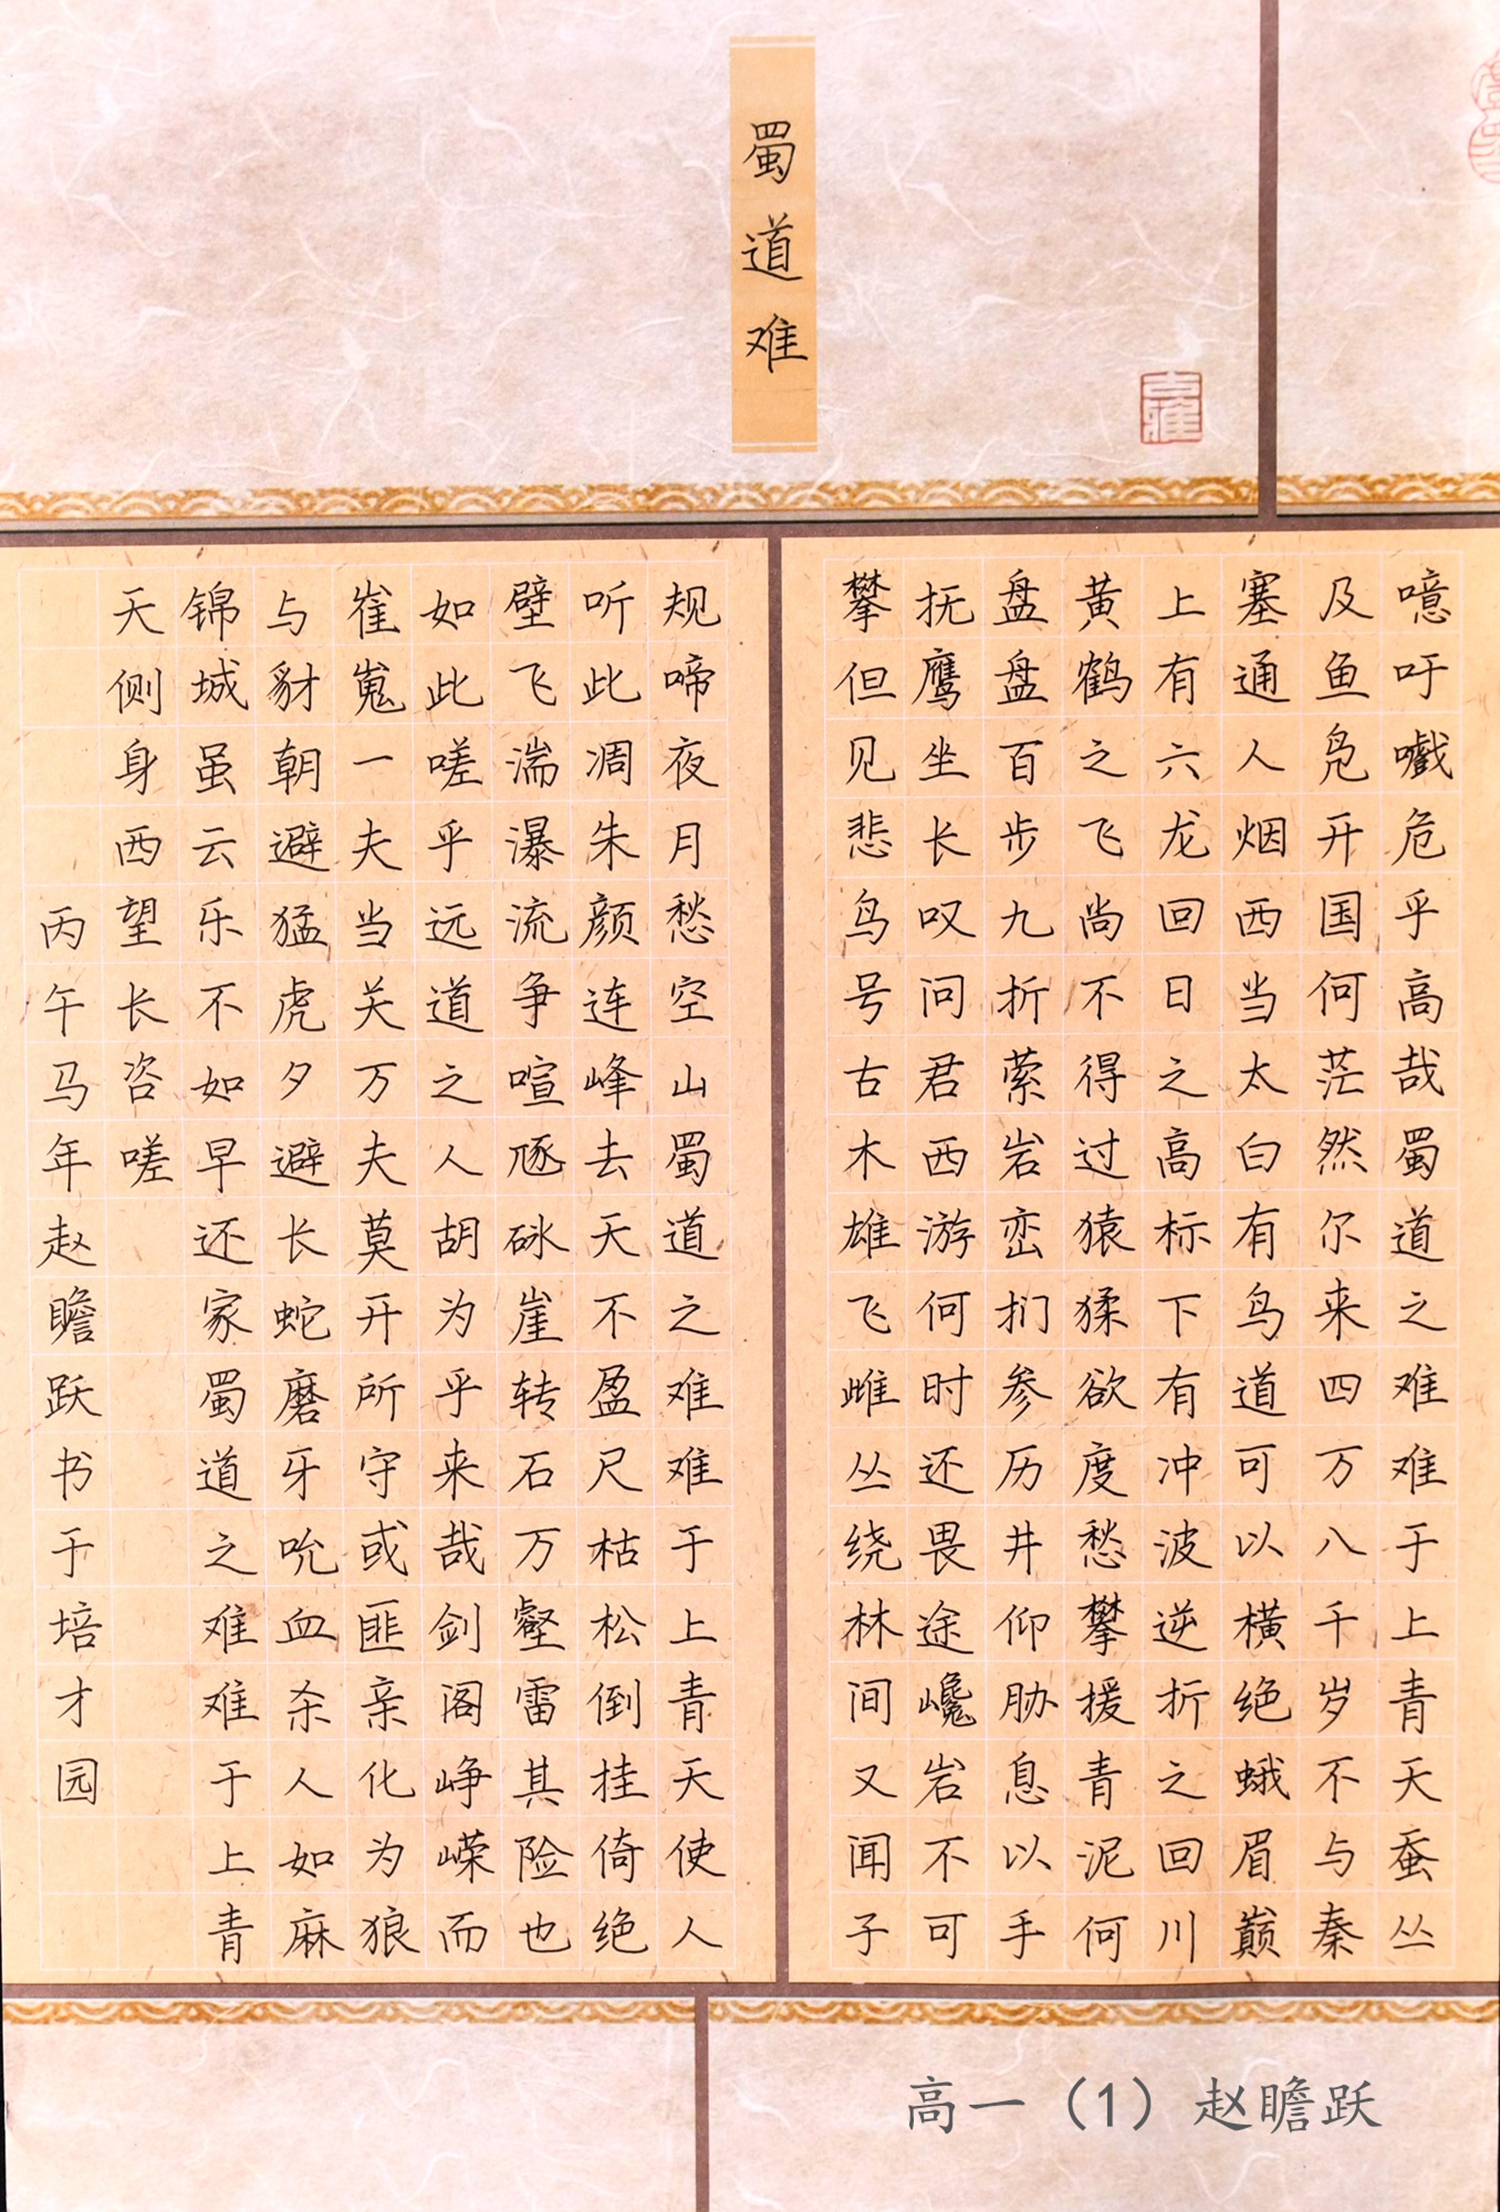 蜀道难
噫吁嚱危乎高哉蜀道之难难于上青天蚕丛
及鱼凫开国何茫然尔来四万八千岁不与秦
塞通人烟西当太白有鸟道可以横绝蛾眉巅
上有六龙回日之高标下有冲波逆折之回川
黄鹤之飞尚不得过猿猱欲度愁攀援青泥何
盘盘百步九折萦岩峦扪参历井仰胁息以手
抚鹰坐长叹问君西游何时还畏途巉岩不可
攀但见悲鸟号古木雄飞雌丛绕林间又闻子
规啼夜月愁空山蜀道之难难于上青天使人
听此凋朱颜连峰去天不盈尺枯松倒挂倚绝
壁飞湍瀑流争喧豗砯崖转石万壑雷其险也
如此嗟乎远道之人胡为乎来哉剑阁峥嵘而
崔嵬一夫当关万夫莫开所守或匪亲化为狼
与豺朝避猛虎夕避长蛇磨牙吮血杀人如麻
锦城虽云乐不如早还家蜀道之难难于上青
天侧身西望长咨嗟
丙午马年赵瞻跃书于培才园
高一（1）赵瞻跃